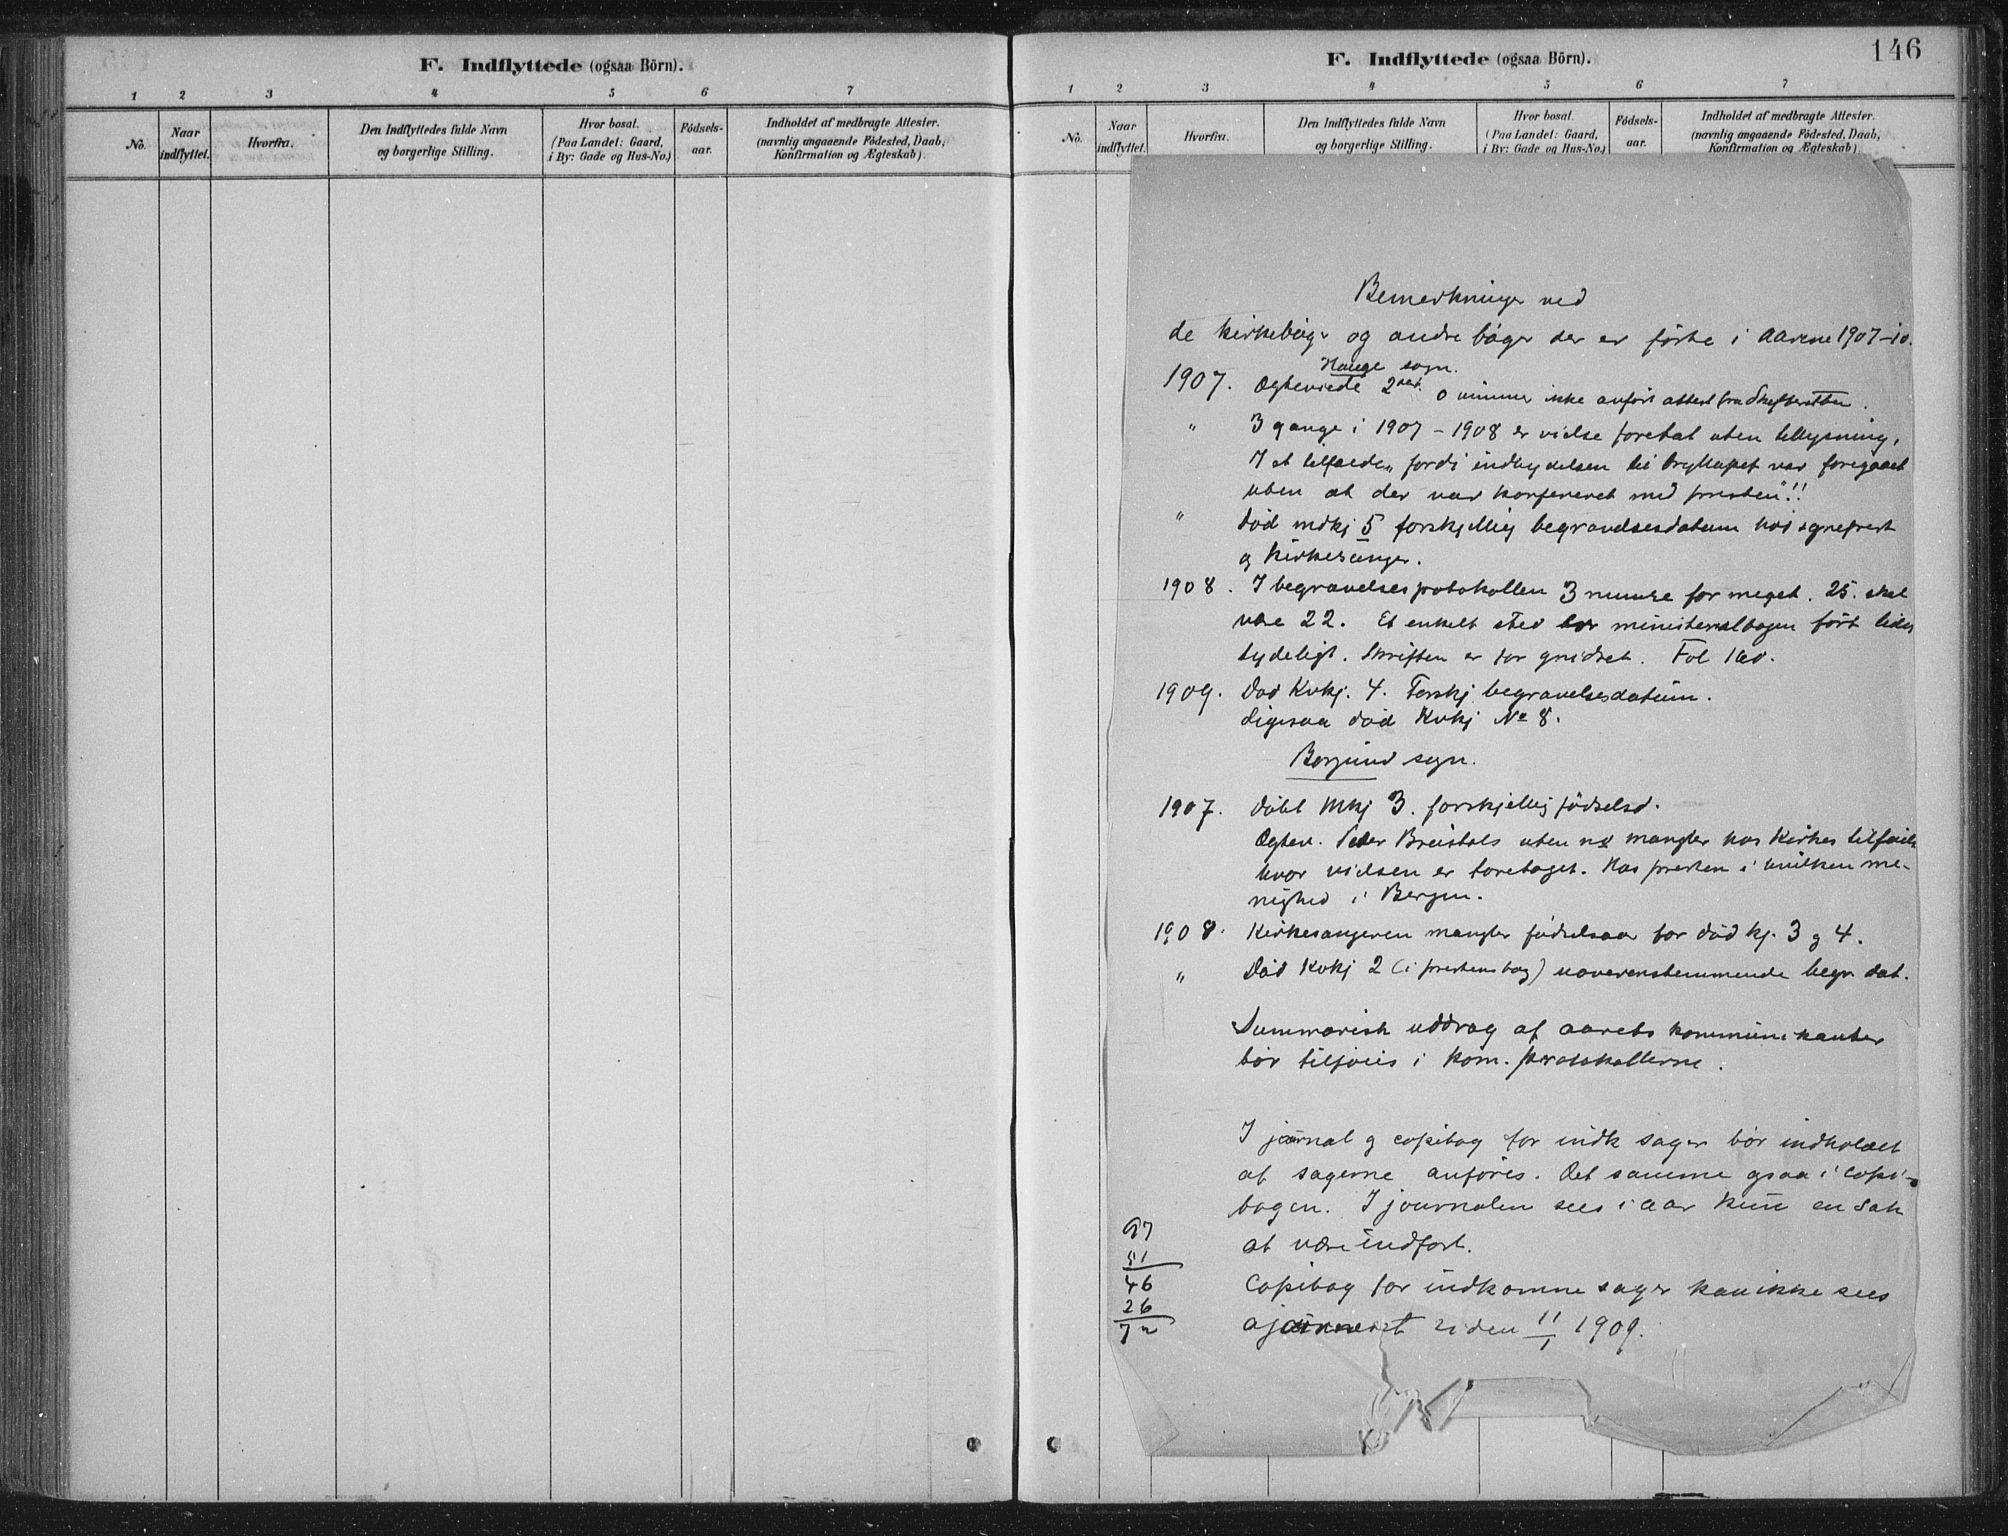 F. Indflyttede (ogsaa Börn).
1 2 3 4 5 6 7
No. Naar indflyttet. Hvorfra. Den Indflyttedes fulde Navn og borgerlige Stilling. Hvor bosat. (Paa Landet: Gaard, i By: Gade og Hus-No.) Födsels-aar. Indholdet af medbragte Attester. (navnlig angaaende Födested, Daab, Konfirmation og Ægteskab).
146
F. Indflyttede (ogsaa Börn).
1 2 3 4 5 6 7
No. Naar indflyttet. Hvorfra. Den Indflyttedes fulde Navn og borgerlige Stilling. Hvor bosat. (Paa Landet: Gaard, i By: Gade og Hus-No.) Födsels-aar. Indholdet af medbragte Attester. (navnlig angaaende Födested, Daab, Konfirmation og Ægteskab)
Bemerkninger ved
de kirkebøger og andre bøger der er førte i aarene 1907-10.
Hauge sogn.
1907. Ægteviede 2 ikke anført attest fra skifteretten.
" 3 gange i 1907 - 1908 er vielse foretat uten tillysning,
I et tilfælde „fordi indbydelsen til bryllupet var foregaaet
uten at der var konfereret med presten"!!
" død mdkj 5 forskjellig begravelsesdatum hos sogneprest
og kirkesanger.
1908. I begravelsesprotokollen 3 numre for meget. 25. skal
være 22. Et enkelt sted ministerialbogen ført
tydeligt. Skriften er for gnidret. Fol 160.
1909. Død Kvkj. 4. Forskj begravelsesdatum.
Ligesaa død Kvkj No 8.
Borgund sogn.
1907. Døbt Mkj 3. forskjellig fødselsd.
Ægtev. Peder Breistøls uten no mangler hos Kirkes
hvor vielsen er foretaget. Hos presten i hvilken me-
nighed i Bergen.
1908. Kirkesangeren mangler fødselsaar for død kj. 3 og 4.
" Død Kvkj 2 (i prestens bog) uoverenstemmende begr. dat.
Summarisk uddrag af aarets kommunikanter
bør tilføies i kom. protokollerne.
I journal og copibog for indk sager bør indholdet
af sagerne anføres. Det samme ogsaa i copi-
bogen. I journalen sees i aar kun en sak
at være indført.
Copibog for indkomne sager kan ikke sees
ajourneret siden 11/1 1909.
97
51
46
26
72